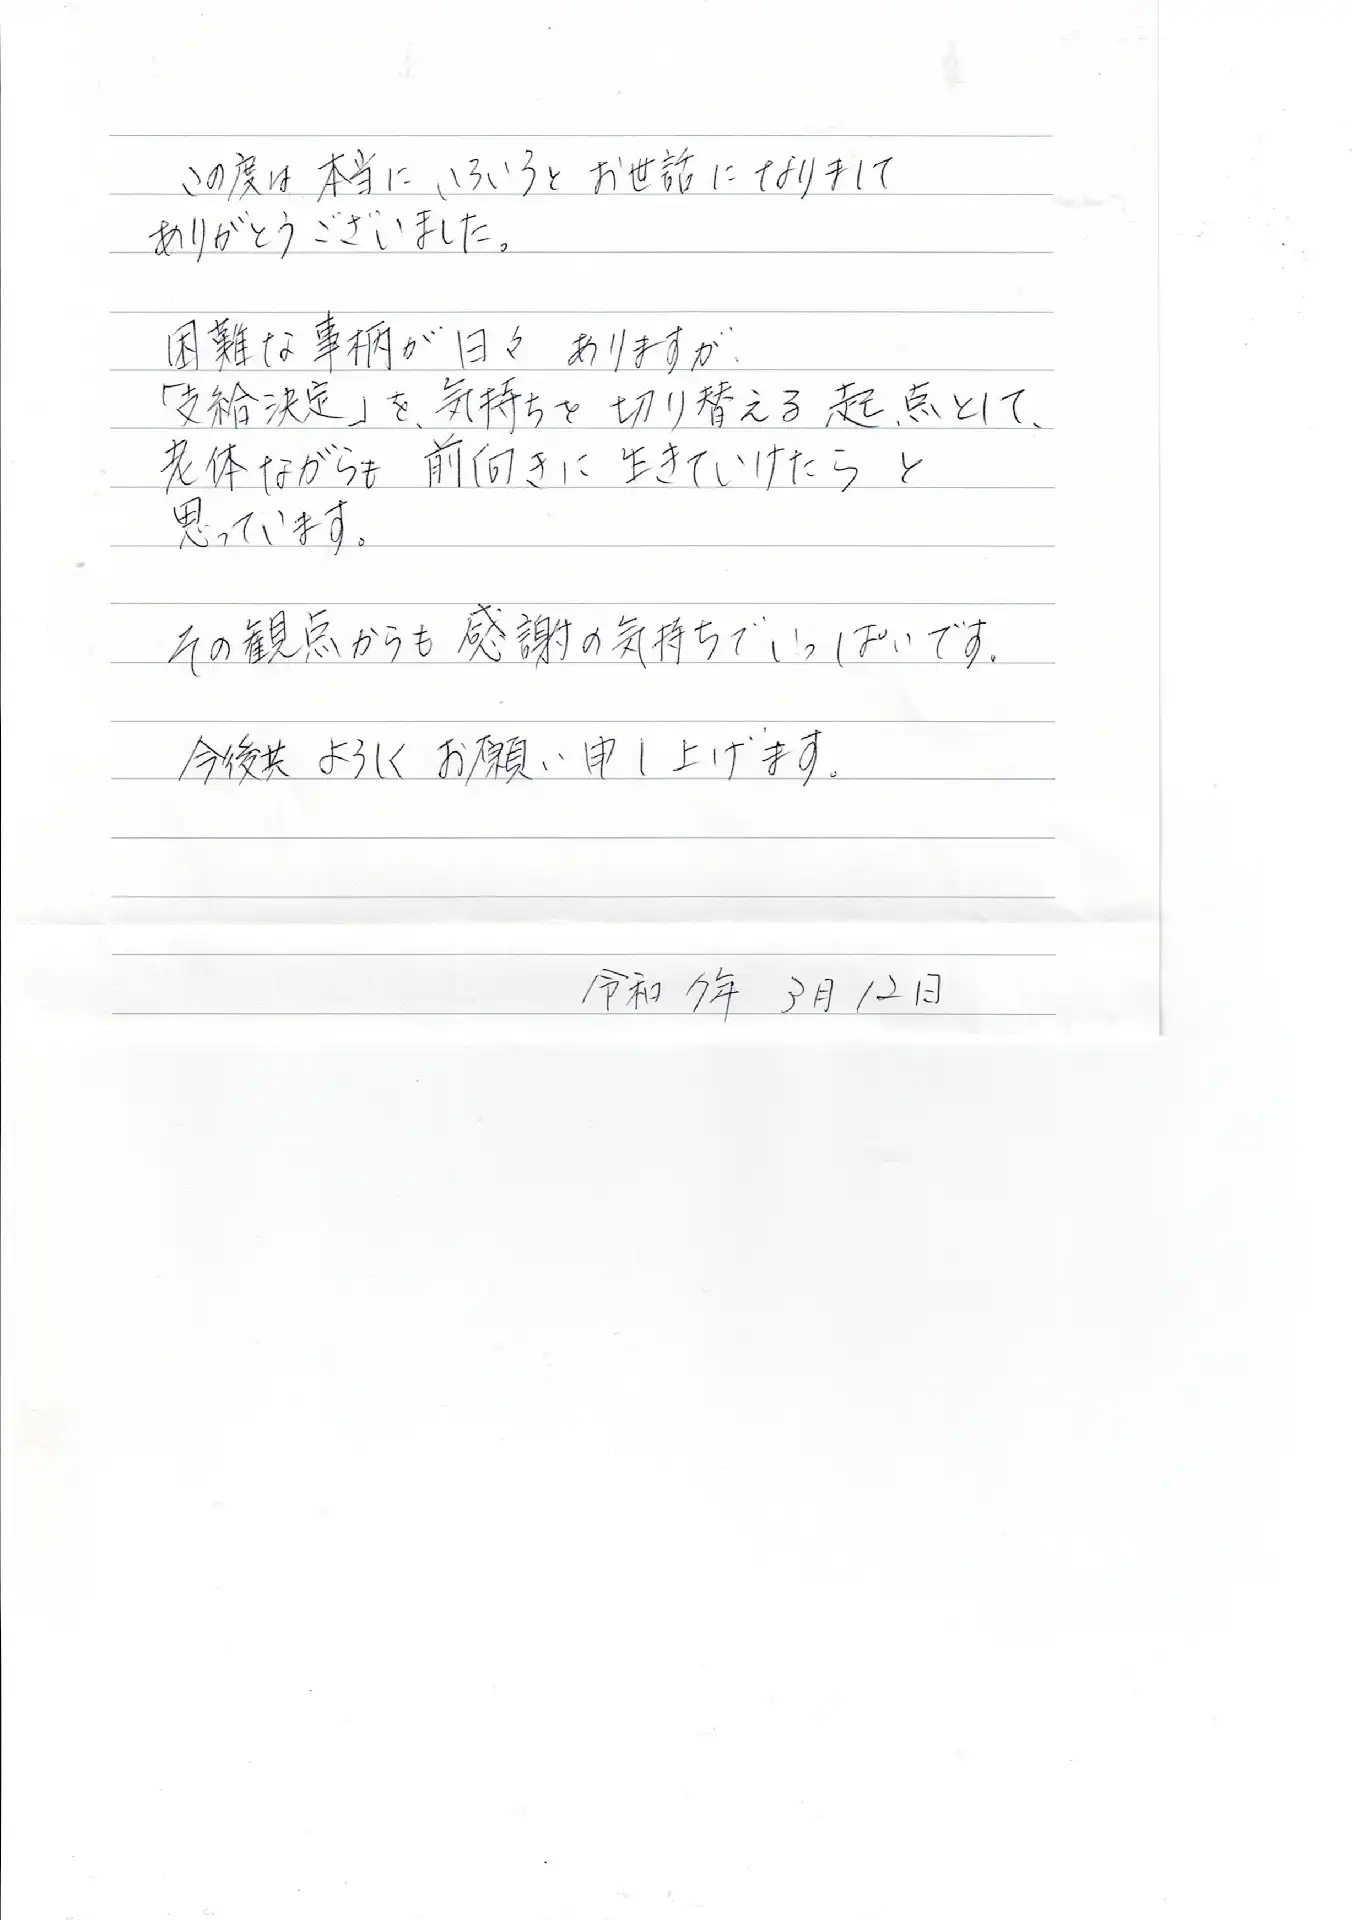 この度は 本当に いろいろと お世話になりまして
ありがとうございました。
困難な事柄が日々 ありますが、
「支給決定」を、気持ちを 切り替える 起点として、
老体ながらも 前向きに 生きていけたら と
思っています。
その観点からも 感謝の気持ちでいっぱいです。
今後共 よろしく お願い申し上げます。
令和7年 3月12日